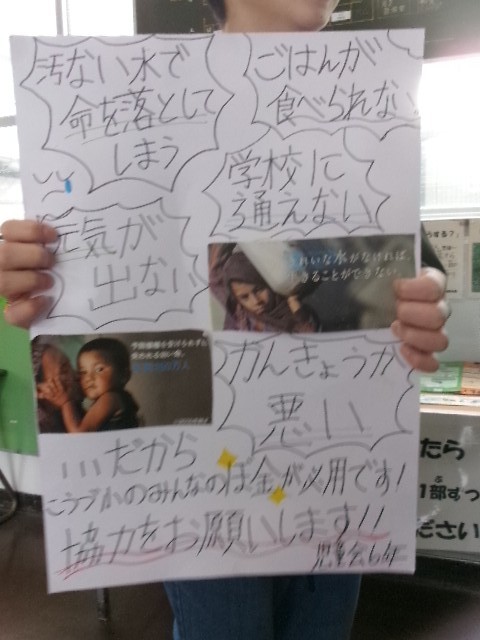 汚ない水で
命を落として
しまう
ごはんが
食べられない
学校に
通えない
元気が
出ない
きれいな水がなければ、
生きることができない。
予防接種を受けられずに
かんきょうが
悪い
...だから
こうづかのみんなのぼ金が必用です!
協力をお願いします!!
児童会6年
たら
1部ずつ
ださい